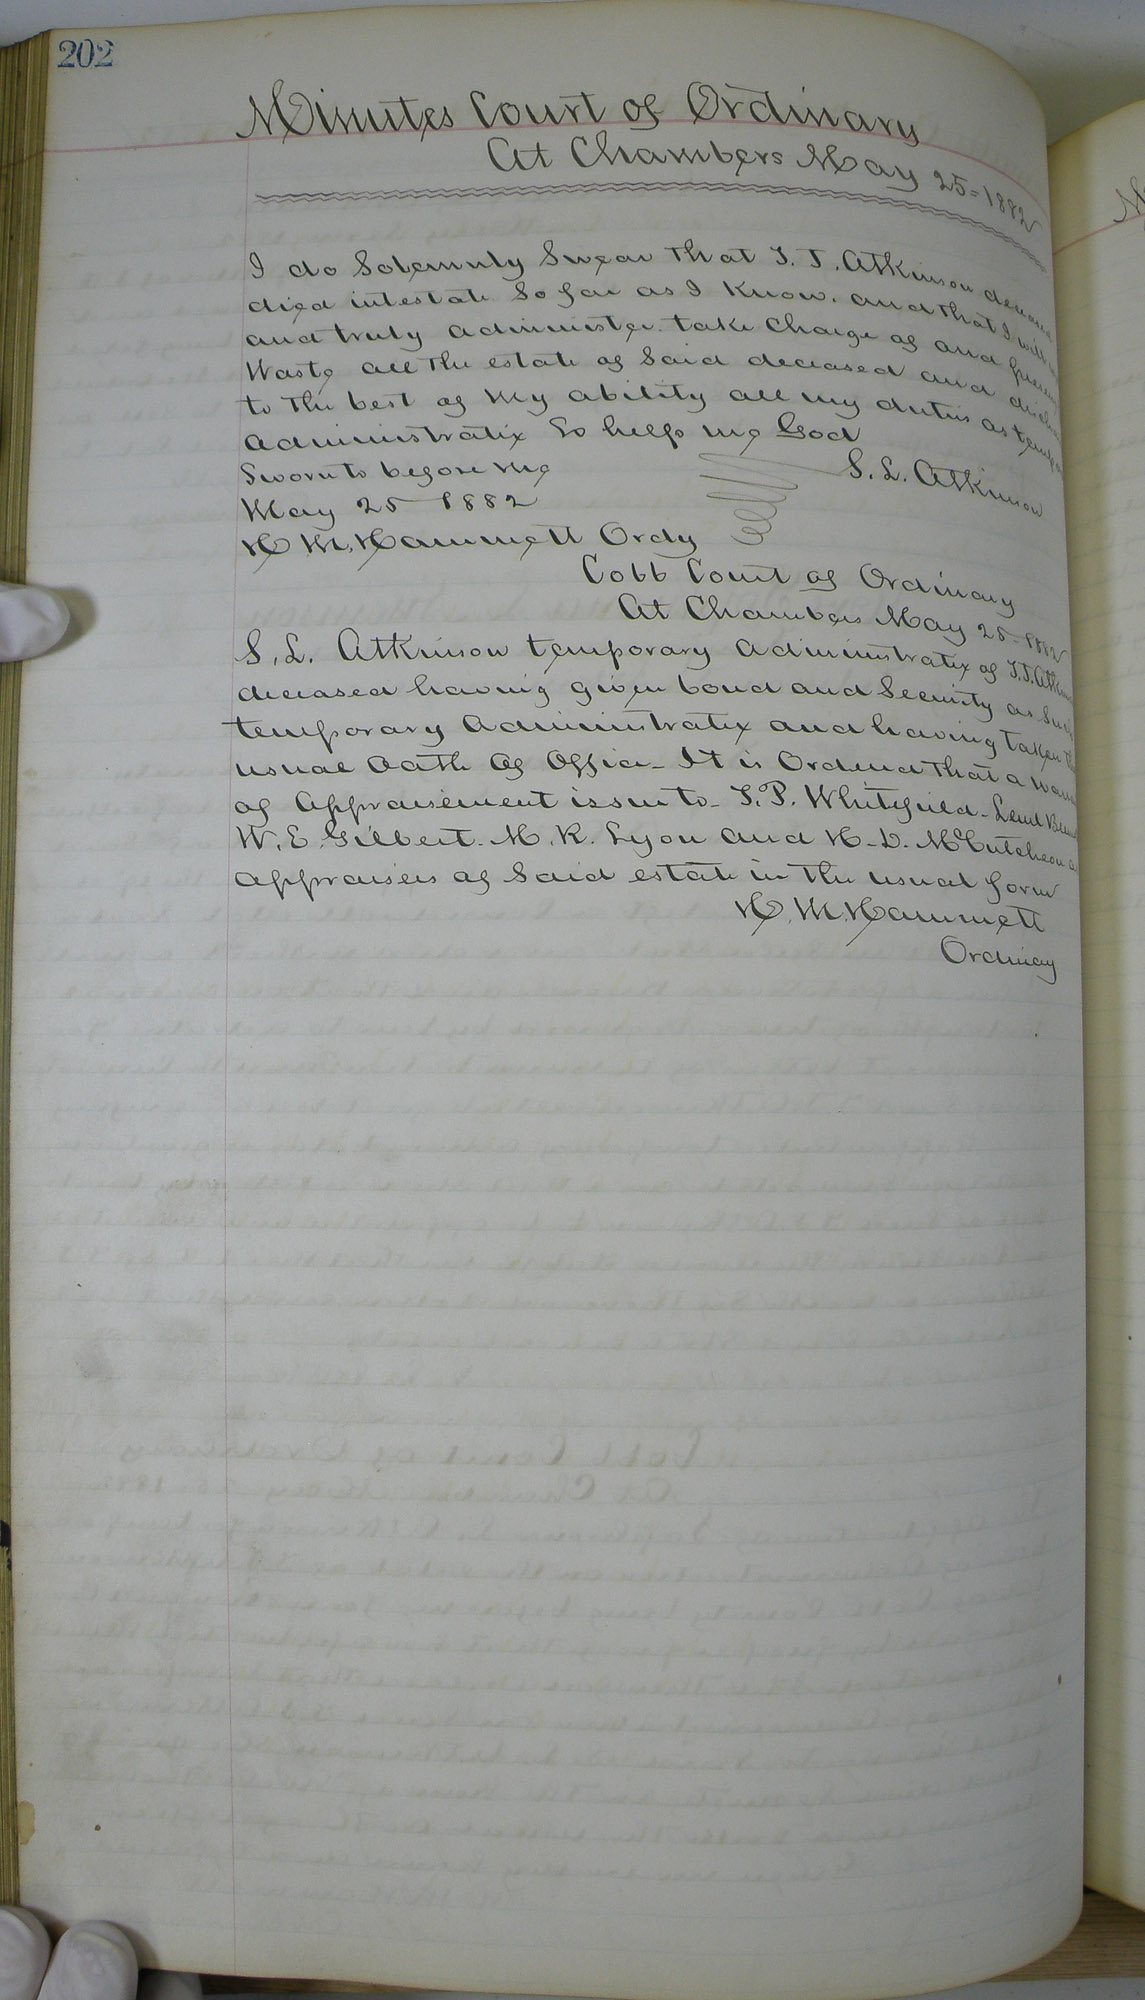 202
Minutes Court of Ordinary
At Chambers May 25-1882
I do Solemnly Swear that T. J. Atkinson deceased
died intestate So far as I Know. and that I will
and truly administer. take Charge of and
Waste all the estate of Said deceased and
to the best of my ability all my duties as
administratix So help me God
Sworn to before me
S. L. Atkinson
May 25 1882
H M Hammett Ordy
Cobb Court of Ordinary
At Chambers May 25-1882
S. L. Atkinson temporary administratix of
deceased having given bond and Security as Such
temporary administratix and having taken
usual oath of office- It is Ordered that a
of appraisement issue to- T. P. Whitfield-
W. E. Gilbert. M. R. Lyon and McCutcheon
appraisers of Said estate in the usual form
H. M. Hammett
Ordinay